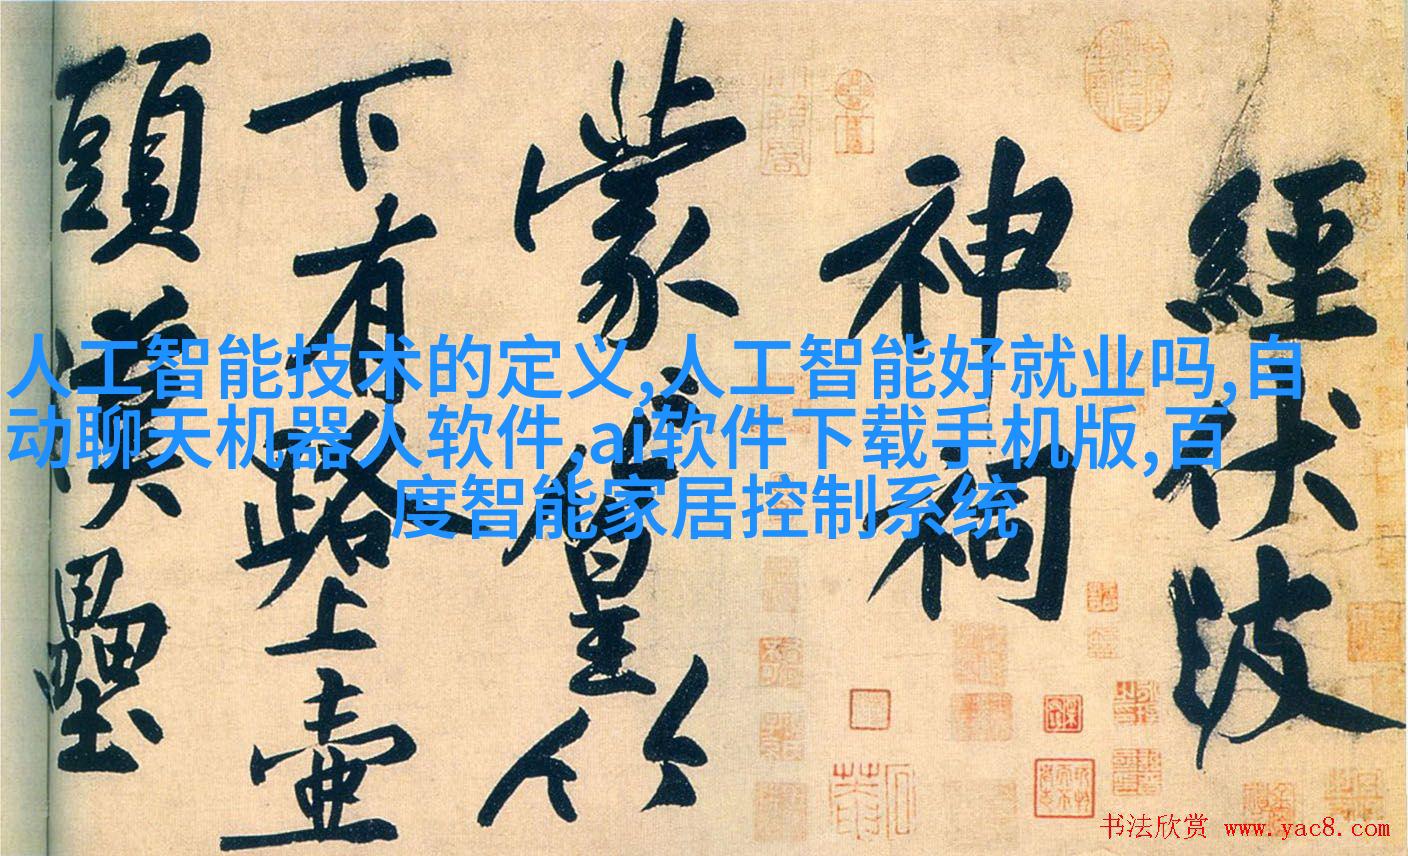 經伏波
神祠
蒙〻篁竹
下有路上壺
頭漢壘
人工智能技术的定义,人工智能好就业吗,自
动聊天机器人软件,ai软件下载手机版,百
度智能家居控制系统
书法欣赏 www.yac8.com